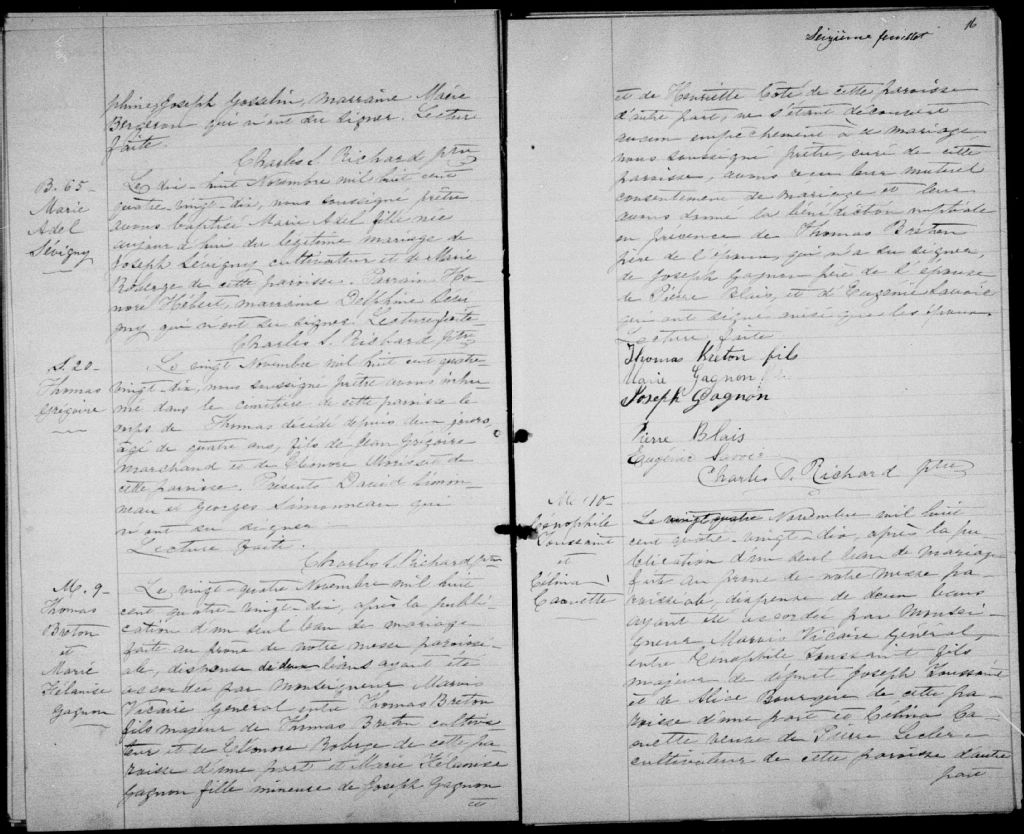 phine, Joseph Gosselin, marraine Marie
Bergeron qui n'ont su signer. Lecture
faite.
Charles S. Richard ptre
B. 65-
Marie
Adel
Sévigny
Le dix-huit Novembre mil huit cent
quatre-vingt-dix, nous soussigné prêtre
avons baptisé Marie Adel fille née
aujourd'hui du légitime mariage de
Joseph Sévigny cultivateur et de Marie
Roberge de cette paroisse. Parrain Ho-
noré Hébert, marraine Delphine
qui n'ont su signer. Lecture faite
Charles S. Richard ptre
S. 20-
Thomas
Grégoire
Le vingt Novembre mil huit cent quatre-
vingt-dix, nous soussigné prêtre avons inhu-
mé dans le cimetière de cette paroisse le
corps de Thomas décédé depuis deux jours,
agé de quatre ans, fils de Jean Grégoire
marchand et de Eléonore Morisset de
cette paroisse. Présents David Simon-
neau et Georges Simonneau qui
n'ont su signer
Lecture faite.
Charles S. Richard, ptre
M. 9-
Thomas
Breton
et
Marie
Hélanise
Gagnon
Le vingt-quatre Novembre mil huit
cent quatre-vingt-dix, après la publi-
cation d'un seul ban de mariage
faite au prone de notre messe paroissi-
ale, dispense de deux bans ayant été
accordée par Monseigneur Marois
Vicaire Général entre Thomas Breton
fils majeur de Thomas Breton cultiva-
teur et de Eléonore Roberge de cette pa-
roisse d'une part et Marie Hélanise
Gagnon fille mineure de Joseph Gagnon
Seizième feuillet
16
et de Henriette Coté de cette paroisse
d'autre part, ne s'étant découvert
aucun empêchement à ce mariage
nous soussigné prêtre, curé de cette
paroisse, avons reçu leur mutuel
consentement de mariage et leur
avons donné la bénédiction nuptiale
en présence de Thomas Breton
père de l'époux, qui n'a su signer,
de Joseph Gagnon père de l'épouse
de Pierre Blais, et d'Eugénie Savoie
qui ont signé ainsi que les époux
Lecture faite
Thomas Breton fils
Marie Gagnon
Joseph Gagnon
Pierre Blais
Eugénie Savoie
Charles S. Richard ptre
M. 10-
Cénophile
Toussaint
et
Célina
Caouette
Le vingt quatre Novembre mil huit
cent quatre-vingt-dix, après la pu-
blication d'un seul ban de mariage
faite au prone de notre messe pa-
roissiale, dispense de deux bans
ayant été accordée par Monsei-
gneur Marois Vicaire Général,
entre Cénophile Toussaint fils
majeur de défunt Joseph Toussaint
et de Alice Bourque de cette pa-
roisse d'une part et Célina Ca-
ouette veuve de Pierre Leclerc
cultivateur de cette paroisse d'autre
part